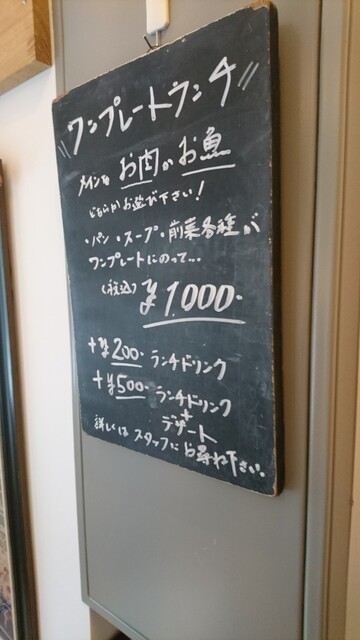 "ワンプレートランチ"
メインを お肉か お魚
どちらかお選び下さい!
・パン ・スープ・前菜各種が
ワンプレートにのって...
(税込) ¥1.000-
+¥200- ランチドリンク
+¥500- ランチドリンク
+
デザート
詳しくは スタッフに お尋ね下さい。